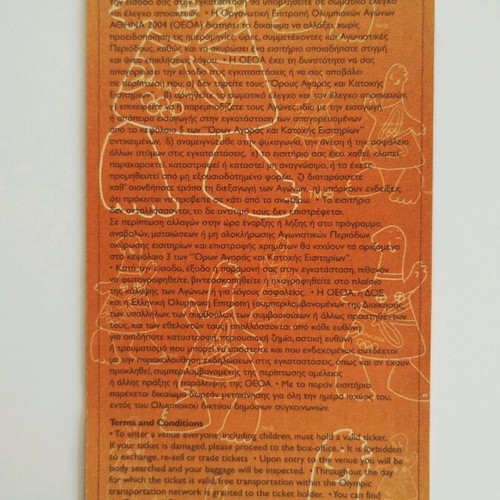 την είσοδό σας στην εγκατάσταση θα υποβληθείτε σε σωματικό έλεγχο
και έλεγχο αποσκευών. • Η Οργανωτική Επιτροπή Ολυμπιακών Αγώνων
ΑΘΗΝΑ 2004 (ΟΕΟΑ) διατηρεί το δικαίωμα να αλλάξει χωρίς
προειδοποίηση τις ημερομηνίες, ώρες, συμμετέχοντες και Αγωνιστικές
Περιόδους, καθώς και να ακυρώσει ένα εισιτήριο οποιαδήποτε στιγμή
και άνευ επικλήσεως λόγου. • Η ΟΕΟΑ έχει τη δυνατότητα να σας
απαγορεύσει την είσοδο στις εγκαταστάσεις ή να σας αποβάλει
σε περίπτωση που, α) δεν τηρείτε τους Όρους Αγοράς και Κατοχής
Εισιτηρίων, β) αρνηθείτε το σωματικό έλεγχο και τον έλεγχο αποσκευών,
γ) επιχειρείτε να παρεμποδίζετε τους Αγώνες, ιδίως με την εισαγωγή
ή απόπειρα εισαγωγής στην εγκατάσταση των απαγορευμένων
από το κεφάλαιο 5 των "Όρων Αγοράς και Κατοχής Εισιτηρίων"
αντικειμένων, δ) αναμειγνύεσθε στην ψυχαγωγία, την άνεση ή την ασφάλεια
άλλων ατόμων στις εγκαταστάσεις, ε) το εισιτήριό σας έχει χαθεί, κλαπεί,
παραχαραχτεί, καταστραφεί ή καταστεί μη αναγνώσιμο, ή το έχετε
προμηθευτεί από μη εξουσιοδοτημένο φορέα, ζ) διαταράσσετε
καθ' οιονδήποτε τρόπο τη διεξαγωγή των Αγώνων, η) υπάρχουν ενδείξεις,
ότι πρόκειται να προβείτε σε κάτι από τα ανωτέρω. • Τα εισιτήρια
δεν ανταλλάσσονται, το δε αντίτιμό τους δεν επιστρέφεται.
Σε περίπτωση αλλαγών στην ώρα έναρξης ή λήξης ή στο πρόγραμμα,
αναβολών, ματαιώσεων ή μη ολοκλήρωσης Αγωνιστικών Περιόδων,
ακύρωσης εισιτηρίων και επιστροφής χρημάτων θα ισχύουν τα οριζόμενα
στο κεφάλαιο 3 των "Όρων Αγοράς και Κατοχής Εισιτηρίων".
• Κατά την είσοδο, έξοδο ή παραμονή σας στην εγκατάσταση, πιθανόν
να φωτογραφηθείτε, βιντεοσκοπηθείτε ή ηχογραφηθείτε στο πλαίσιο
της κάλυψης των Αγώνων ή για λόγους ασφαλείας. • Η ΟΕΟΑ, η ΔΟΕ
και η Ελληνική Ολυμπιακή Επιτροπή (συμπεριλαμβανομένων της Διοίκησης,
των υπαλλήλων, των συμβούλων, των συμβασιούχων ή άλλως προστηθέντων
τους, και των εθελοντών τους) απαλλάσσονται από κάθε ευθύνη
για οιαδήποτε καταστροφή, περιουσιακή ζημία, αστική ευθύνη
ή τραυματισμό που μπορεί να υποστείτε και που ενδεχομένως συνδέεται
με την παρακολούθηση εκδηλώσεων στις εγκαταστάσεις, όπως και αν έχουν
προκληθεί, συμπεριλαμβανομένης της περίπτωσης αμέλειας
ή άλλης πράξης ή παράλειψης της ΟΕΟΑ. • Με το παρόν εισιτήριο
παρέχεται δικαίωμα δωρεάν μετακίνησης για όλη την ημέρα ισχύος του,
εντός του Ολυμπιακού δικτύου δημόσιων συγκοινωνιών.
Terms and Conditions
• To enter a venue everyone, including children, must hold a valid ticket.
If your ticket is damaged, please proceed to the box-office. • It is forbidden
to exchange, re-sell or trade tickets • Upon entry to the venue you will be
body searched and your baggage will be inspected. • Throughout the day
for which the ticket is valid, free transportation within the Olympic
transportation network is granted to the ticket holder. • You can find